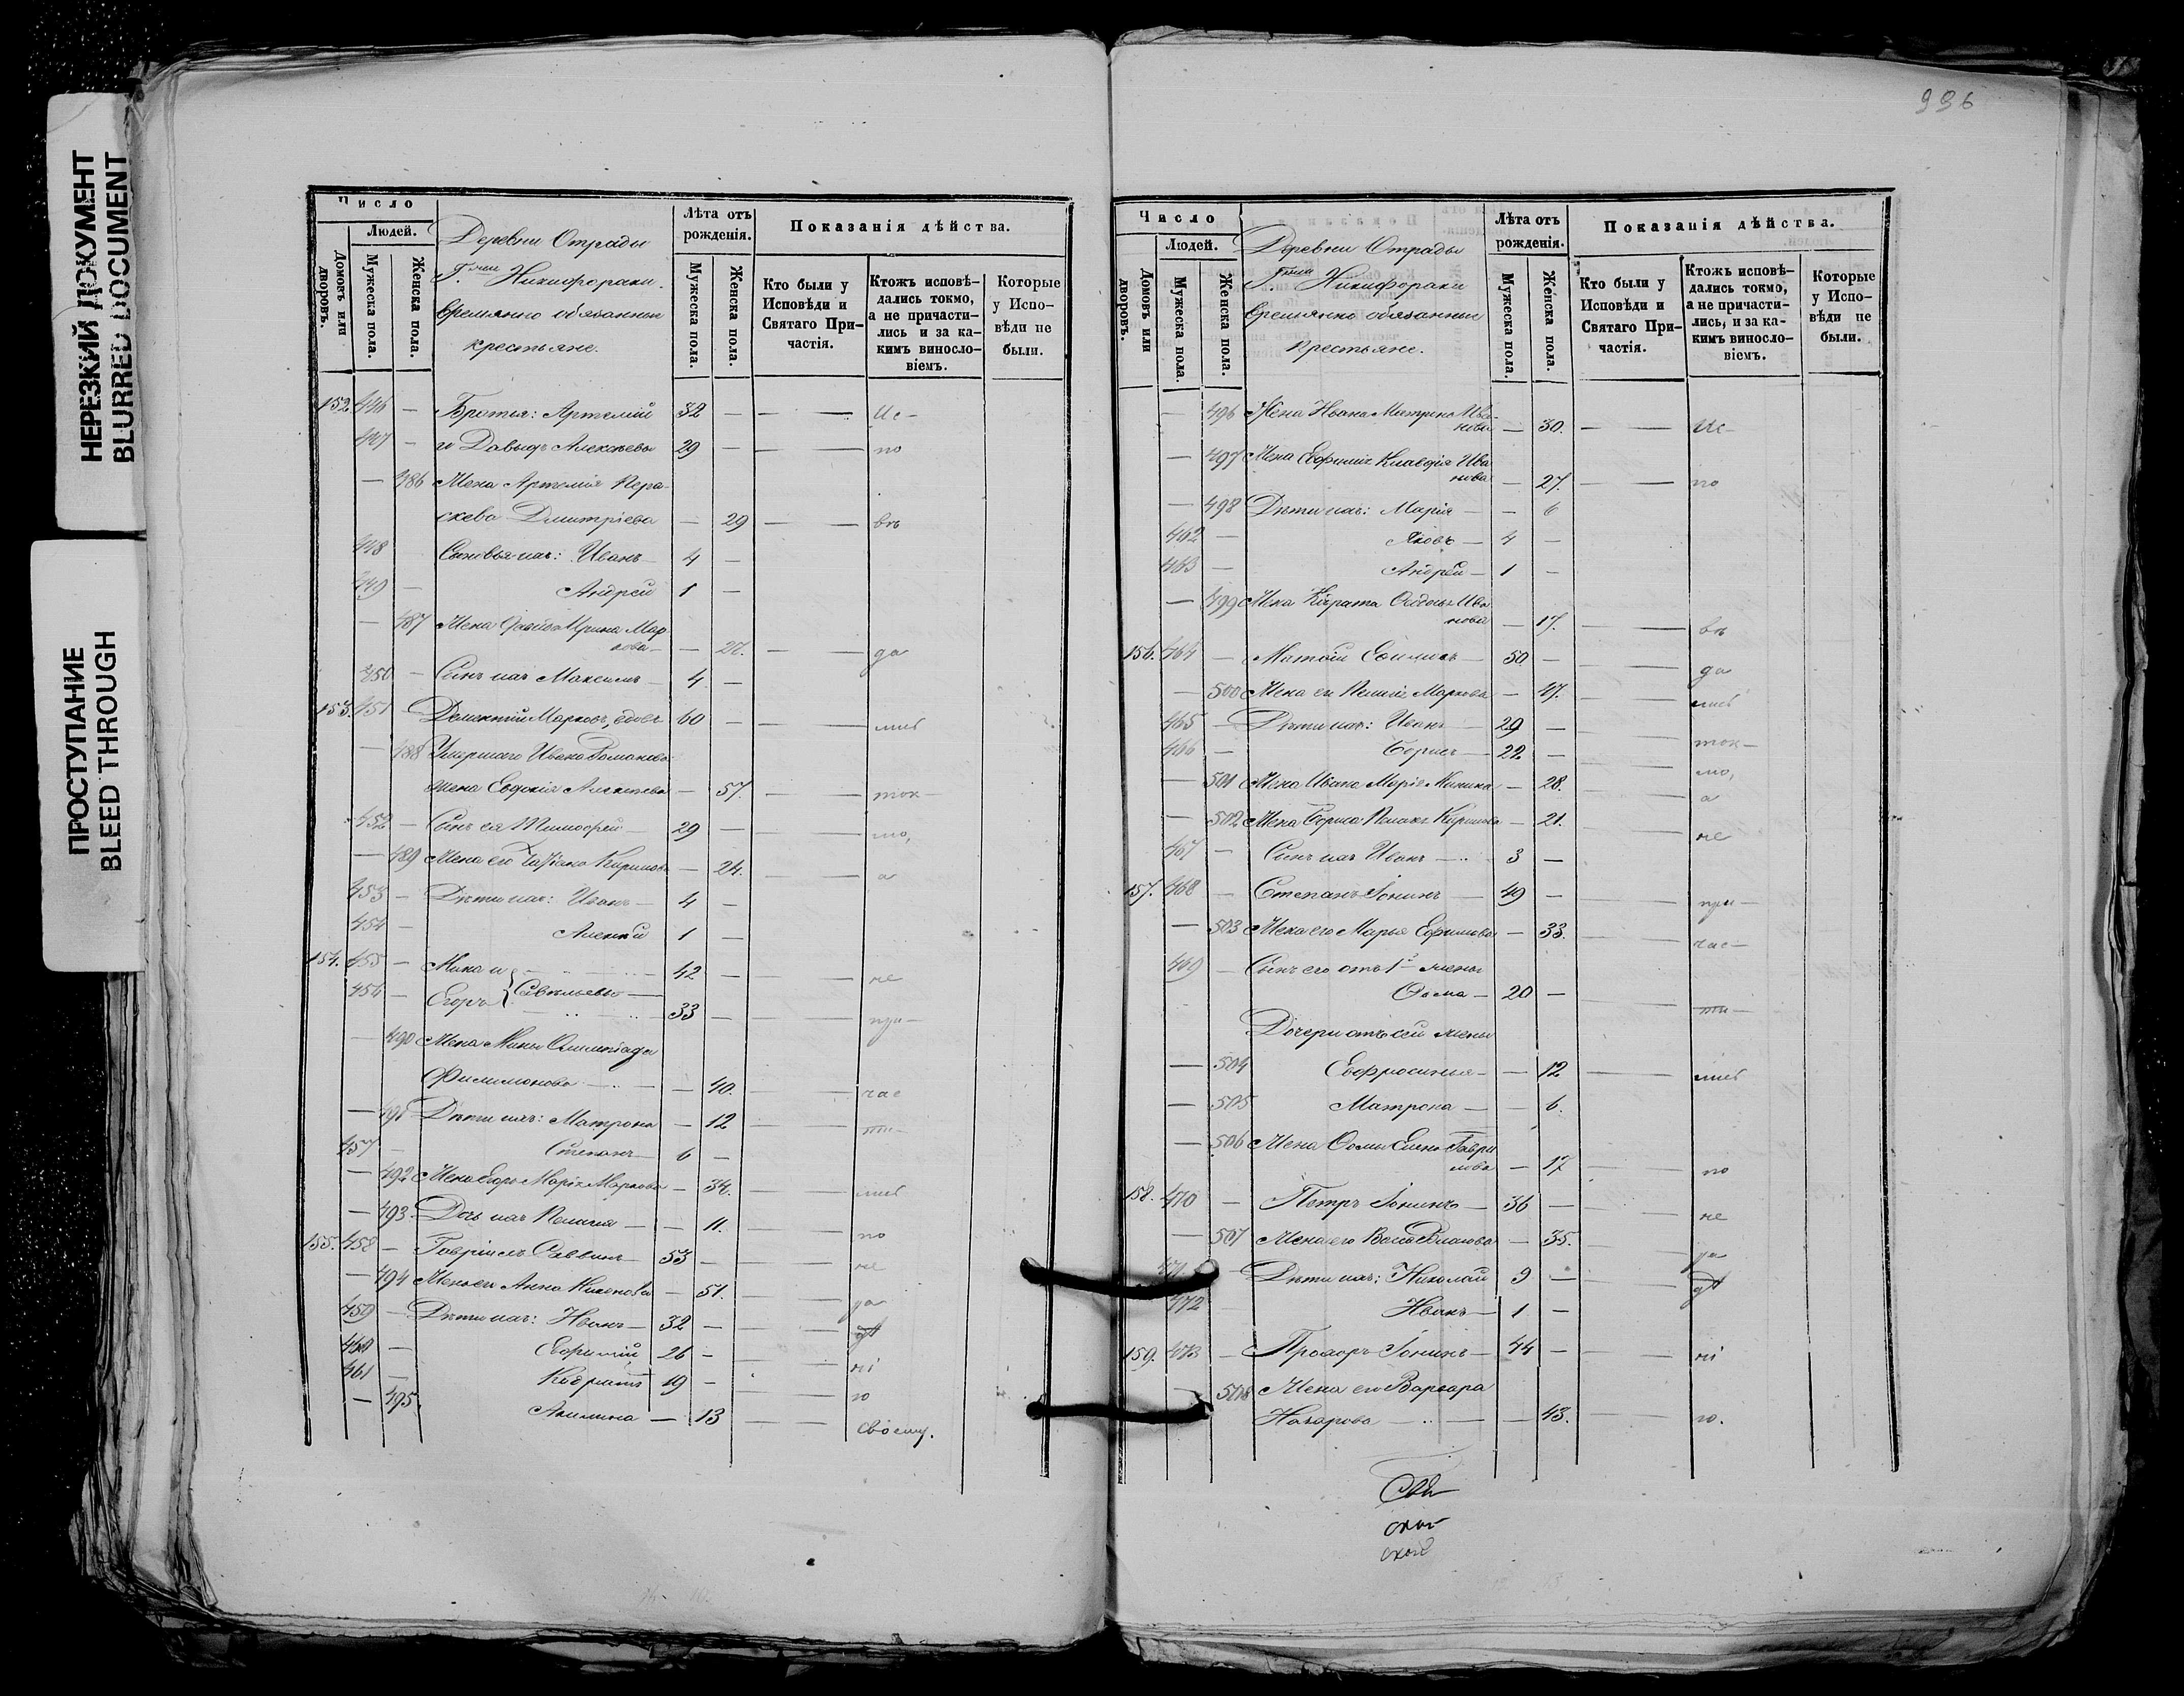 НЕРЕЗКИЙ ДОКУМЕНТ
BLURRED DOCUMENT
ПРОСТУПАНИЕ
BLEED THROUGH
Число
Людей.
Домовъ или дворовъ.
Мужеска пола.
Женска пола.
Деревни Отрады
Г. Никифораки.
временно обязанные
крестьяне.
Лѣта отъ рожденія.
Мужеска пола.
Женска пола.
Показанія дѣйства.
Кто были у Исповѣди и Святаго Причастія.
Ктожъ исповѣ-
дались токмо,
а не причасти-
лись и за ка-
кимъ винесло-
віемъ.
Которые
у Испо-
вѣди не
были.
152. 446 — Братья: Артемій 32 — — — Ис-
447 — и Давыдъ Алексѣевы 29 — — — по
— 486 Жена Артемія Пара-
скева Дмитріева — 29 — — вѣ
448 Сыновья ихъ: Иванъ — 4 —
449 — Андрей 1 —
— 487 Жена Ирина Мар
кова — — 27. — — да
450 — Сынъ ихъ Максимъ — 4 —
153. 451 — Марковъ, вдовъ 60 — — — лись
— 488 Умершаго Ивана Романова
жена Евдокія Алексѣева — 57. — — ток-
452 — Сынъ ея Тимофей — 29 — — — мо,
— 489 Жена его Татіана — 24. — — а
453 — Дѣти ихъ: Иванъ — 4 —
454 — Алексѣй 1 —
154. 455 — Мина и 42 — — — не
456 — Егоръ } Савельевы — 33 — — — при-
— 490 Жена Мины Олимпіада
Филимонова — — 40. — — час
— 491 Дѣти ихъ: Матрона — 12 — — ти-
457 — Степанъ — 6 —
— 492 Жена Егора Марія Маркова — 34. — — лись
— 493. Дочь ихъ Пелагія — — 11. — — по
155. 458 — Гавріилъ 53 — — — не
— 494 Жена его Анна — 51. — — ра
459 — Дѣти ихъ: Иванъ — 32 — — —
460 — Евфимій 26 — — — ні
461 — Кодратъ 19 — — — ю
— 495. Акилина — 13 — — своему.
936
Число
Людей.
Домовъ или дворовъ.
Мужеска пола.
Женска пола.
Деревни Отрады
Г. Никифораки
временно обязанные
крестьяне.
Лѣта отъ рожденія.
Мужеска пола.
Женска пола.
Показанія дѣйства.
Кто были у Исповѣди и Святаго Причастія.
Ктожъ исповѣ-
дались токмо,
а не причасти-
лись, и за ка-
кимъ винесло-
віемъ.
Которые
у Испо-
вѣди не
были.
— 496 Жена Ивана Матрона Ива-
нова — 30. — — Ис-
— 497 Жена Евфимія Клавдія Ива
нова — 27. — — по
— 498 Дѣти ихъ: Марія — — 6
462 — Яковъ — 4 —
463 — Андрей — 1 —
— 499 Жена Кодрата Ива
нова — 17. — — вѣ
156. 464 — 50 — — — да
— 500 Жена его Пелагія Маркова — 47. — — лись
465 — Дѣти ихъ: Иванъ — 29 — — — ток-
466 — Борисъ — 22 — — — мо,
— 501 Жена Ивана Марія — 28. — — а
— 502 Жена Бориса — 21. — — не
467 — Сынъ ихъ Иванъ — 3 —
157. 468 — Степанъ Іонинъ — 49 — — — при-
— 503 Жена его Марья Ефимова — 33. — — час-
469 — Сынъ его отъ 1й жены
Ѳома — 20 — — — ти-
Дочери отъ сей жены
— 504 Евфросинія — — 12 — — лись
— 505 Матрона — — 6.
— 506 Жена Ѳомы Елена Гаври
лова — 17 — — по
158. 470 — Петръ Іонинъ — 36 — — — не
— 507 Жена его — 35. — — ра
471 — Дѣти ихъ: Николай 9 —
472 Иванъ — 1 —
159. 473 — Прохоръ Іонинъ — 44 — — — ні
— 508 Жена его Варвара
Назарова — — 43. — — ю.